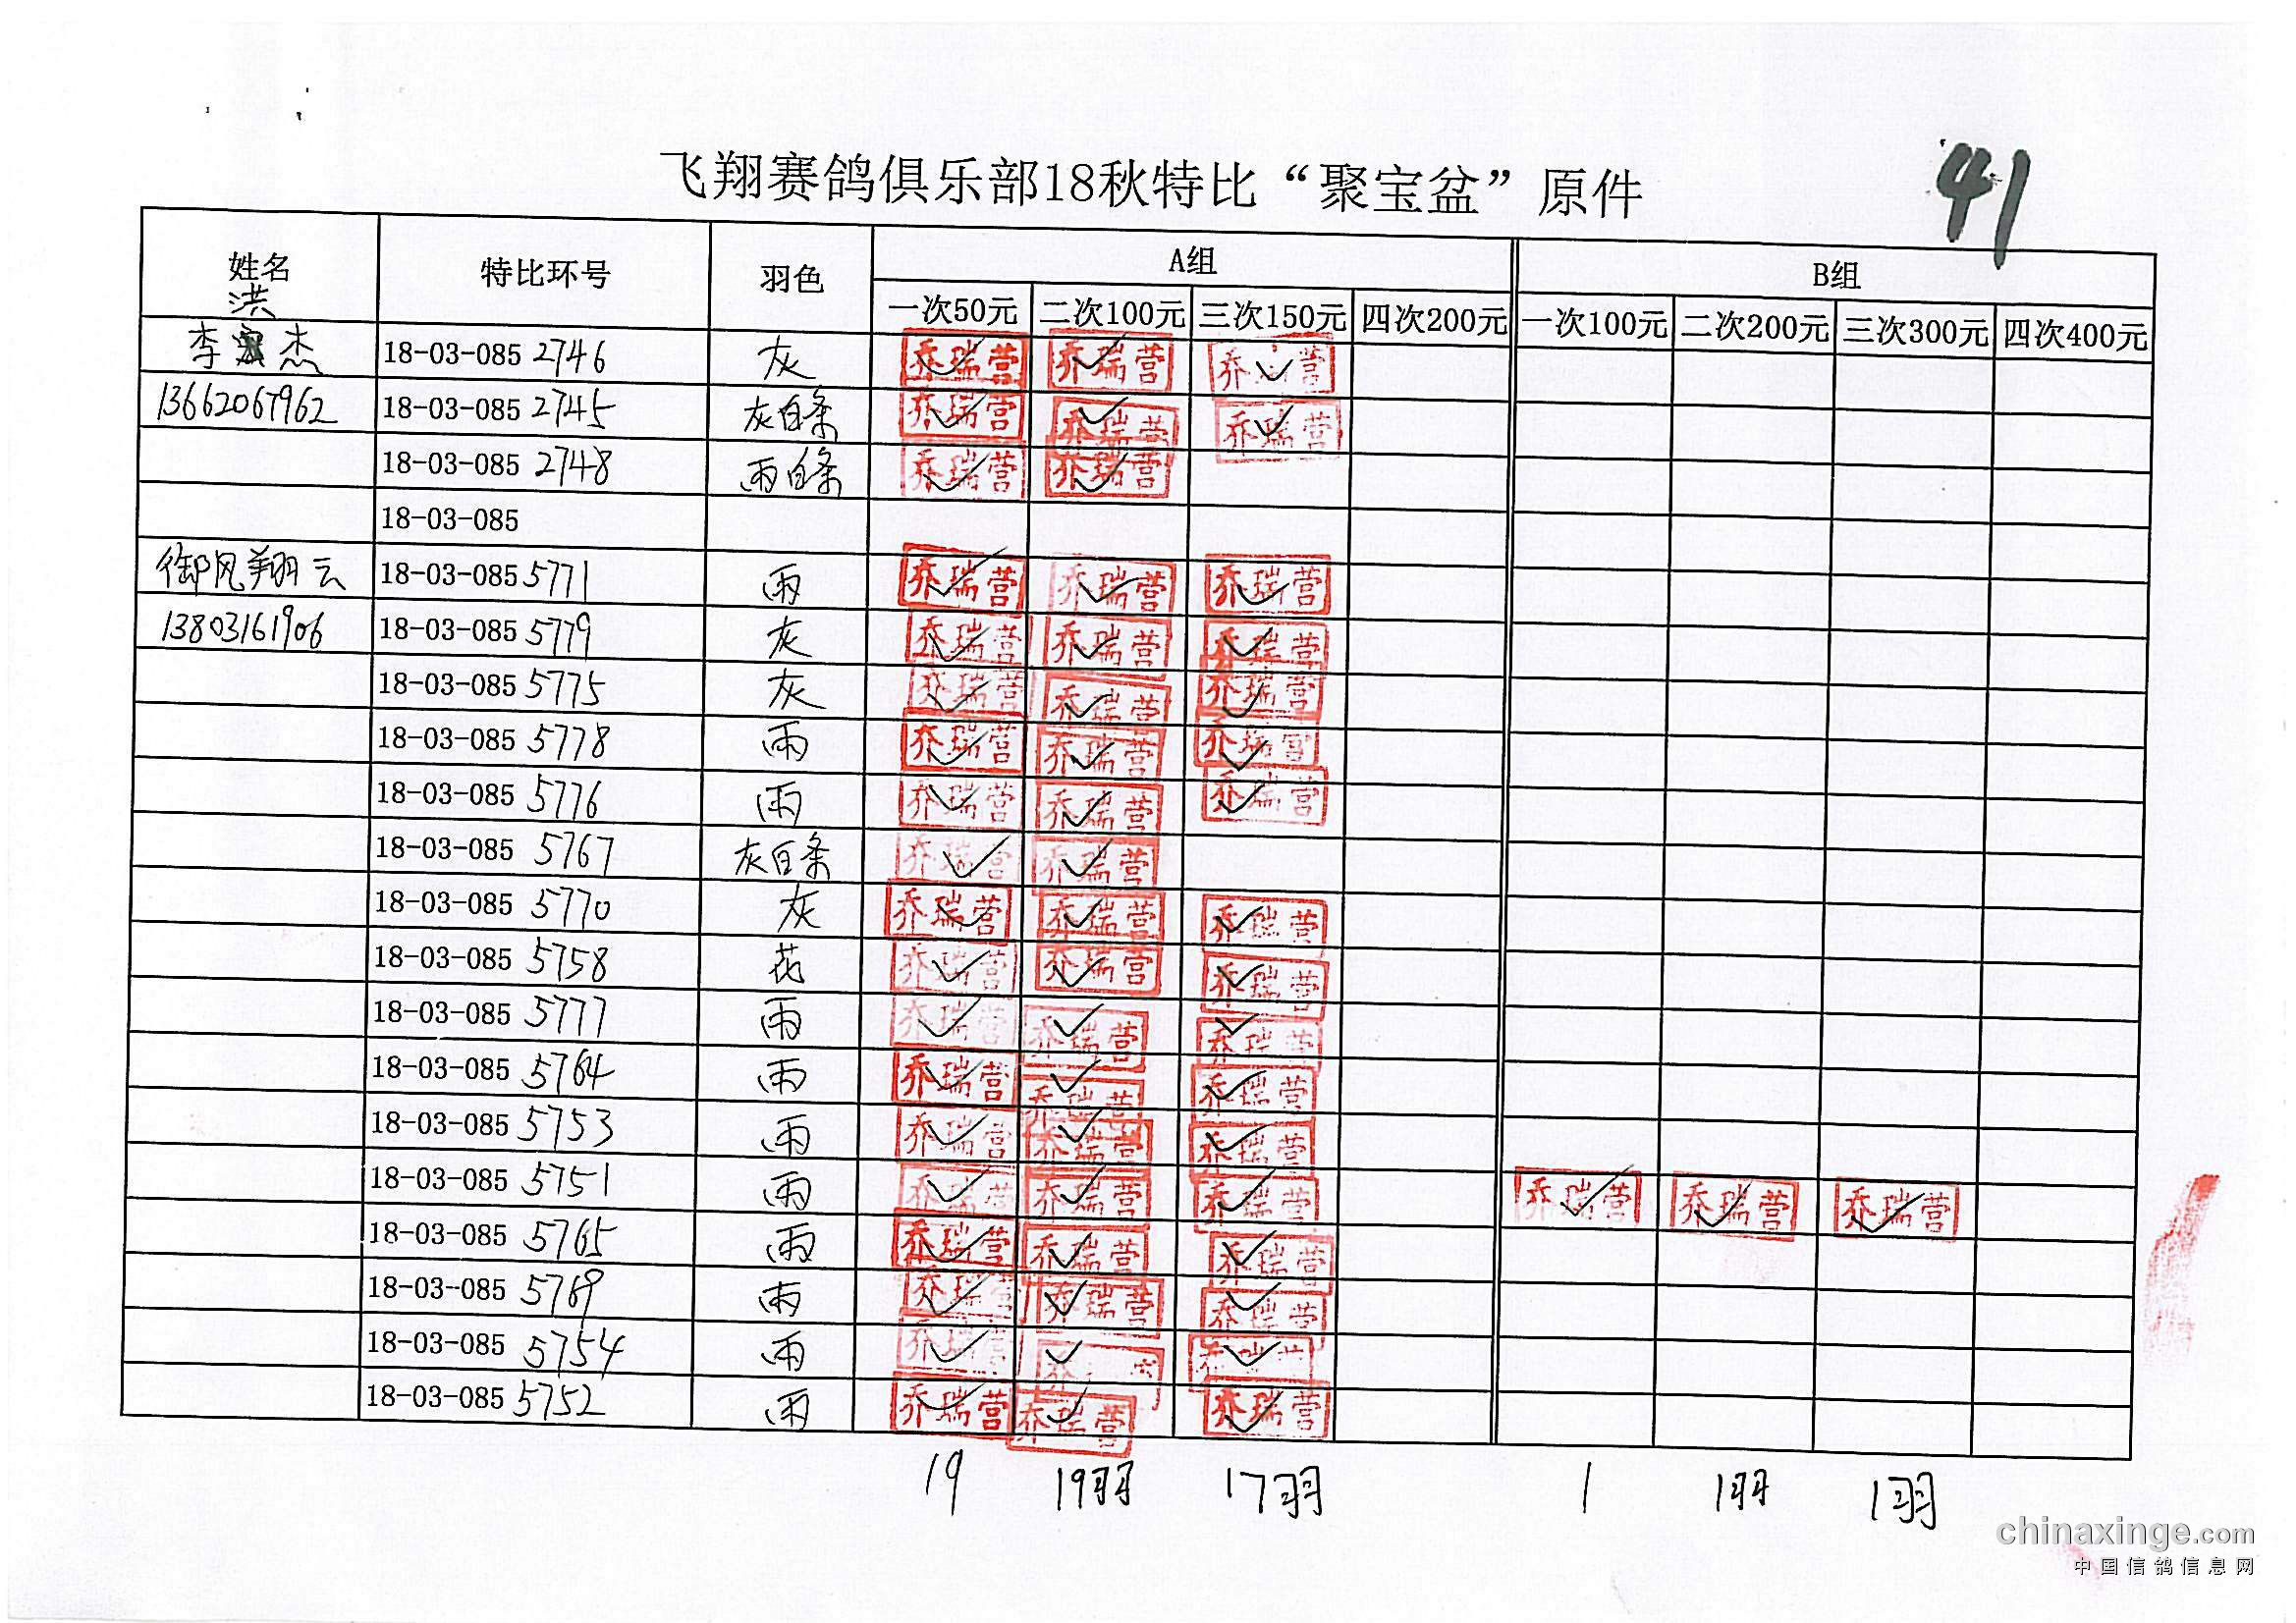 41
飞翔赛鸽俱乐部18秋特比“聚宝盆”原件
姓名 特比环号 羽色 A组 B组
一次50元 二次100元 三次150元 四次200元 一次100元 二次200元 三次300元 四次400元
洪
李 杰 18-03-085 2746 灰 乔瑞营 乔瑞营 乔瑞营
13662067962 18-03-085 2745 灰白条 乔瑞营 乔瑞营 乔瑞营
18-03-085 2748 雨白条 乔瑞营 乔瑞营
18-03-085
御风翔云 18-03-085 5771 雨 乔瑞营 乔瑞营 乔瑞营
13803161906 18-03-085 5779 灰 乔瑞营 乔瑞营 乔瑞营
18-03-085 5775 灰 乔瑞营 乔瑞营 乔瑞营
18-03-085 5778 雨 乔瑞营 乔瑞营 乔瑞营
18-03-085 5776 雨 乔瑞营 乔瑞营 乔瑞营
18-03-085 5767 灰白条 乔瑞营 乔瑞营
18-03-085 5770 灰 乔瑞营 乔瑞营 乔瑞营
18-03-085 5758 花 乔瑞营 乔瑞营 乔瑞营
18-03-085 5777 雨 乔瑞营 乔瑞营 乔瑞营
18-03-085 5764 雨 乔瑞营 乔瑞营 乔瑞营
18-03-085 5753 雨 乔瑞营 乔瑞营 乔瑞营
18-03-085 5751 雨 乔瑞营 乔瑞营 乔瑞营 乔瑞营 乔瑞营 乔瑞营
18-03-085 5765 雨 乔瑞营 乔瑞营 乔瑞营
18-03-085 5769 雨 乔瑞营 乔瑞营 乔瑞营
18-03-085 5754 雨 乔瑞营
18-03-085 5752 雨 乔瑞营 乔瑞营 乔瑞营
19 19羽 17羽 1 1羽 1羽
chinaxinge.com
中国信鸽信息网